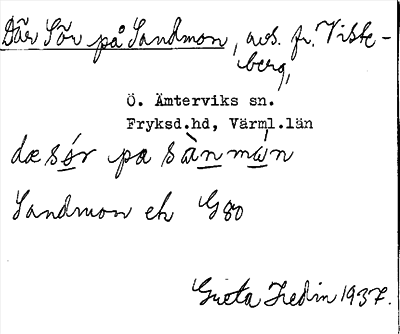 Där Sör på Sandmon, avs. fr. Viste-
berg,
Ö. Ämterviks sn.
Fryksd.hd, Värml.län
dæ sör pa sànmán
Sandmon eh G80
Greta Hedin 1937.